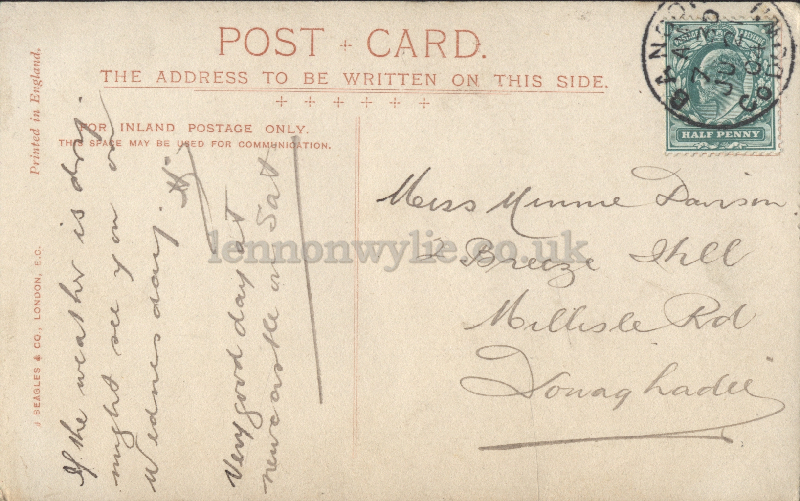 POST + CARD.
THE ADDRESS TO BE WRITTEN ON THIS SIDE.
FOR INLAND POSTAGE ONLY.
THIS SPACE MAY BE USED FOR COMMUNICATION.
Printed in England.
J BEAGLES & CO., LONDON, E.C.
If the weather is dry.
might see you on
Wednesday. H.
Very good day at
newcastle on Sat
Miss Minnie Davison
2 Breeze Hill
Millisle Rd
Donaghadee
HALF PENNY
BANGOR
CO DOWN
lennonwylie.co.uk